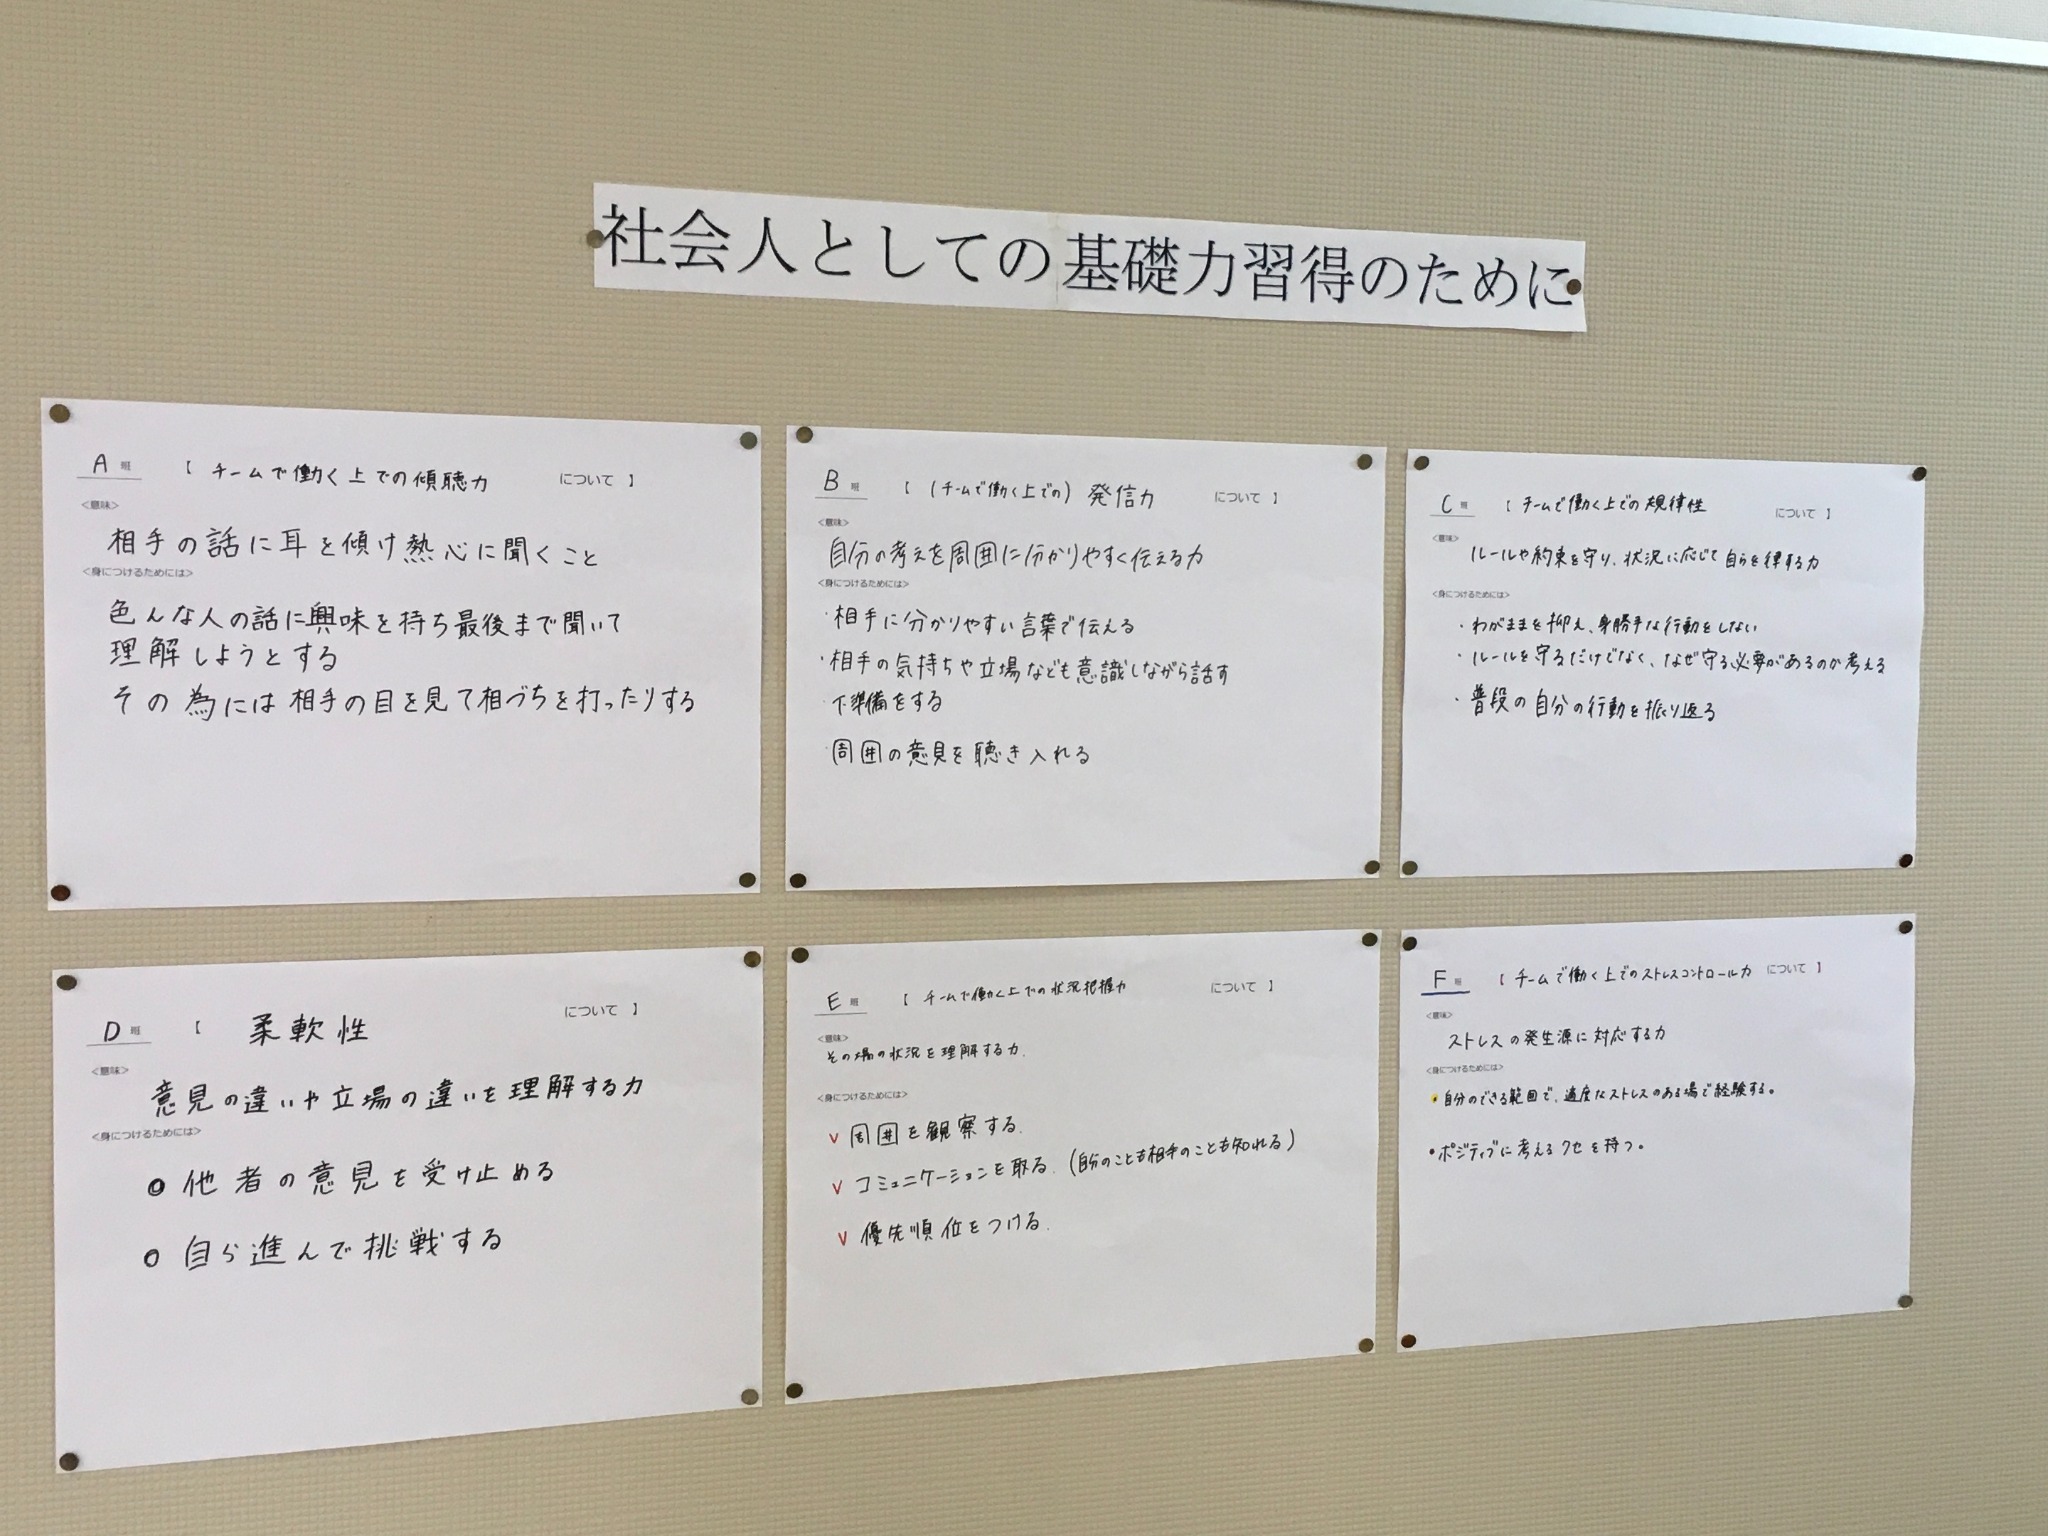 社会人としての基礎力習得のために
A 班 【 チームで働く上での傾聴力 について 】
<意味>
相手の話に耳を傾け熱心に聞くこと
<身につけるためには>
色んな人の話に興味を持ち最後まで聞いて
理解しようとする
その為には相手の目を見て相づちを打ったりする
B 班 【 (チームで働く上での) 発信力 について 】
<意味>
自分の考えを周囲に分かりやすく伝える力
<身につけるためには>
・相手に分かりやすい言葉で伝える
・相手の気持ちや立場なども意識しながら話す
・下準備をする
・周囲の意見を聴き入れる
C 班 【 チームで働く上での規律性 について 】
<意味>
ルールや約束を守り、状況に応じて自らを律する力
<身につけるためには>
・わがままを抑え、身勝手な行動をしない
・ルールを守るだけでなく、なぜ守る必要があるのか考える
・普段の自分の行動を振り返る
D 班 【 柔軟性 について 】
<意味>
意見の違いや立場の違いを理解する力
<身につけるためには>
○ 他者の意見を受け止める
○ 自ら進んで挑戦する
E 班 【 チームで働く上での状況把握力 について 】
<意味>
その場の状況を理解する力.
<身につけるためには>
v 周囲を観察する.
v コミュニケーションを取る. (自分のことも相手のことも知れる)
v 優先順位をつける.
F 班 【 チームで働く上でのストレスコントロール力 について 】
<意味>
ストレスの発生源に対応する力
<身につけるためには>
・自分のできる範囲で、適度なストレスのある場で経験する。
・ポジティブに考えるクセを持つ。